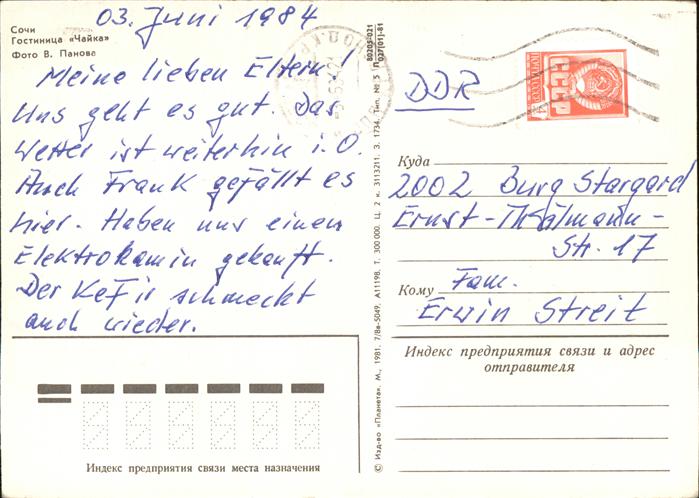 03. Juni 1984
Сочи
Гостиница «Чайка»
Фото В. Панова
Meine lieben Eltern!
Uns geht es gut. Das
Wetter ist weiterhin i. O.
Auch Frank gefällt es
hier. Haben uns einen
Elektrokamin gekauft.
Der Kefir schmeckt
auch wieder.
Индекс предприятия связи места назначения
© Изд-во «Планета». М., 1981. 7/8в-5049. А11198. Т. 100 000. Ц. 2 к. 3113211. З. 1734. Тип. № 5
DDR
СССР
Куда
2002 Burg Stargard
Ernst-Thälmann-
Str. 17
Кому Fam.
Erwin Streit
Индекс предприятия связи и адрес
отправителя